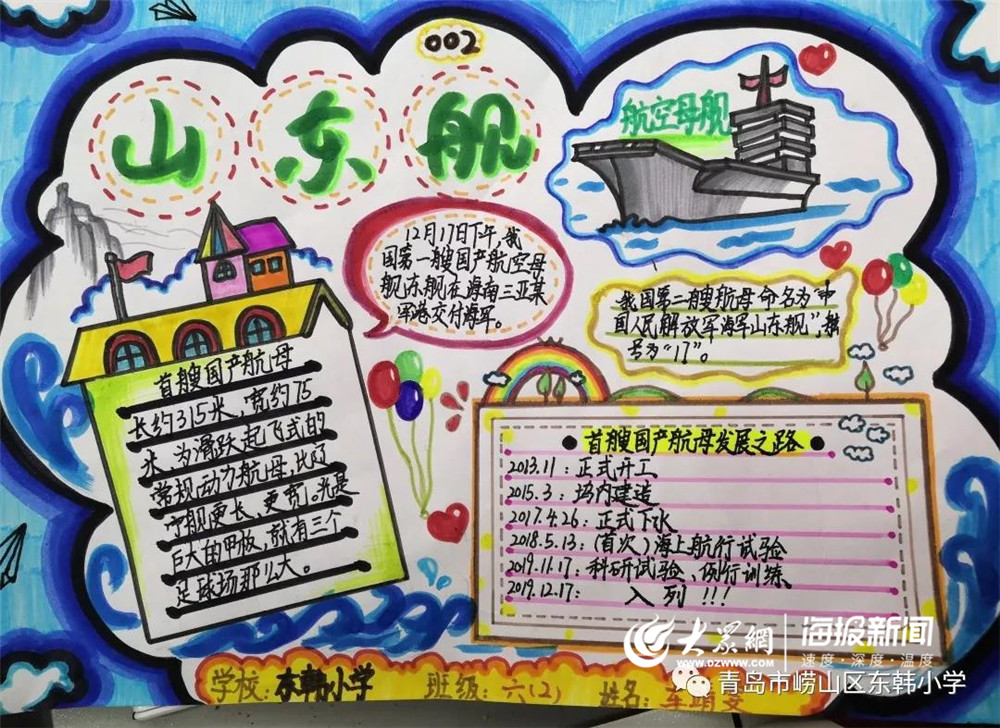 002
山东舰
航空母舰
12月17日下午,我
国第一艘国产航空母
舰山东舰在海南三亚某
军港交付海军。
我国第二艘航母命名为“中
国人民解放军海军山东舰”,舷
号为“17”。
首艘国产航母
长约315米,宽约75
米,为滑跃起飞式的
常规动力航母,比辽
宁舰更长、更宽。光是
巨大的甲板,就有三个
足球场那么大。
首艘国产航母发展之路
2013.11:正式开工
2015.3:坞内建造
2017.4.26:正式下水
2018.5.13:(首次)海上航行试验
2019.11.17:科研试验、例行训练
2019.12.17: 入列!!!
学校:东韩小学 班级:六(2) 姓名:
大众网
www.dzwww.com
海报新闻
速度·深度·温度
青岛市崂山区东韩小学